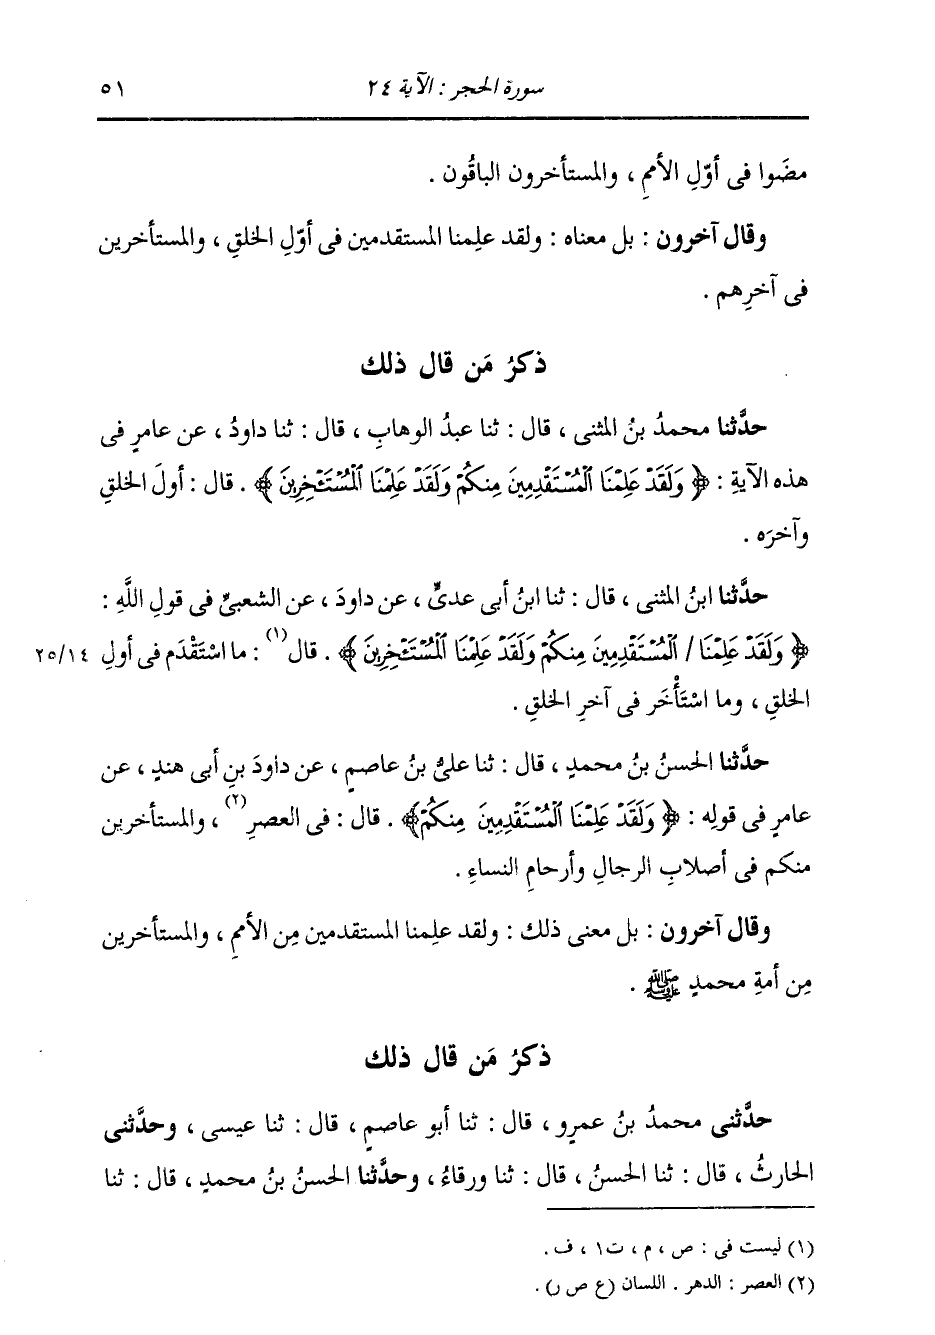 سورة الحجر : الآية ٢٤ ٥١
مضَوا فى أوّلِ الأممِ ، والمستأخرون الباقُون .
وقال آخرون : بل معناه : ولقد علِمنا المستقدمين فى أوّلِ الخلقِ ، والمستأخرين
فى آخرِهم .
ذكرُ مَن قال ذلك
حدَّثنا محمدُ بنُ المثنى ، قال : ثنا عبدُ الوهابِ ، قال : ثنا داودُ ، عن عامرٍ فى
هذه الآيةِ : ﴿ وَلَقَدْ عَلِمْنَا ٱلْمُسْتَقْدِمِينَ مِنكُمْ وَلَقَدْ عَلِمْنَا ٱلْمُسْتَـْٔخِرِينَ ﴾ . قال : أولَ الخلقِ
وآخرَه .
حدَّثنا ابنُ المثنى ، قال : ثنا ابنُ أبى عدىٍّ ، عن داودَ ، عن الشعبىِّ فى قولِ اللَّهِ :
﴿ وَلَقَدْ عَلِمْنَا / ٱلْمُسْتَقْدِمِينَ مِنكُمْ وَلَقَدْ عَلِمْنَا ٱلْمُسْتَـْٔخِرِينَ ﴾ . قال(١) : ما اسْتَقْدَم فى أولِ ٢٥/١٤
الخلقِ ، وما اسْتَأْخَر فى آخرِ الخلقِ .
حدَّثنا الحسنُ بنُ محمدٍ ، قال : ثنا علىُّ بنُ عاصمٍ ، عن داودَ بنِ أبى هندٍ ، عن
عامرٍ فى قولِه : ﴿ وَلَقَدْ عَلِمْنَا ٱلْمُسْتَقْدِمِينَ مِنكُمْ ﴾ . قال : فى العصرِ(٢) ، والمستأخرين
منكم فى أصلابِ الرجالِ وأرحامِ النساءِ .
وقال آخرون : بل معنى ذلك : ولقد علِمنا المستقدمين مِن الأممِ ، والمستأخرين
مِن أمةِ محمدٍ ﷺ .
ذكرُ مَن قال ذلك
حدَّثنى محمدُ بنُ عمرٍو ، قال : ثنا أبو عاصمٍ ، قال : ثنا عيسى ، وحدَّثنى
الحارثُ ، قال : ثنا الحسنُ ، قال : ثنا ورقاءُ ، وحدَّثنا الحسنُ بنُ محمدٍ ، قال : ثنا
(١) ليست فى : ص ، م ، ت١ ، ف .
(٢) العصر : الدهر . اللسان (ع ص ر) .